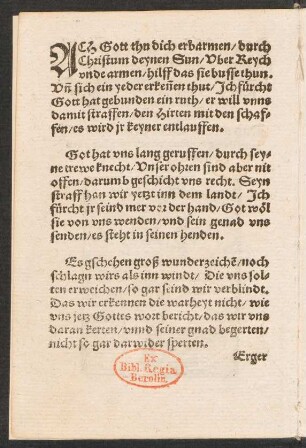 ACh Gott thu dich erbarmen/ durch
Christum deynen Sun/ Vber Reych
vnde armen/ hilff das sie busse thun.
Vñ sich ein yeder erkeñen thut/ Ich fürcht
Gott hat gebunden ein ruth/ er will vnns
damit straffen/ den Hirten mit den schaf-
fen/ es wird jr keyner entlauffen.
Got hat vns lang geruffen/ durch sey-
ne trewe knecht/ Vnser ohren sind aber nit
offen/ darumb geschicht vns recht. Seyn
straff han wir yetzt inn dem landt/ Ich
fürcht jr seind mer vor der hand/ Got wöl
sie von vns wenden/ vnd sein genad vns
senden/ es steht in seinen henden.
Es gschehen groß wunderzeichē/ noch
schlagn wirs als inn windt/ Die vns sol-
ten erweichen/ so gar seind wir verblindt.
Das wir erkennen die warheyt nicht/ wie
vns jetz Gottes wort bericht/ das wir vns
daran kerten/ vnnd seiner gnad begerten/
nicht so gar darwider sperten.
Erger
Ex
Bibl. Regia
Berolin.